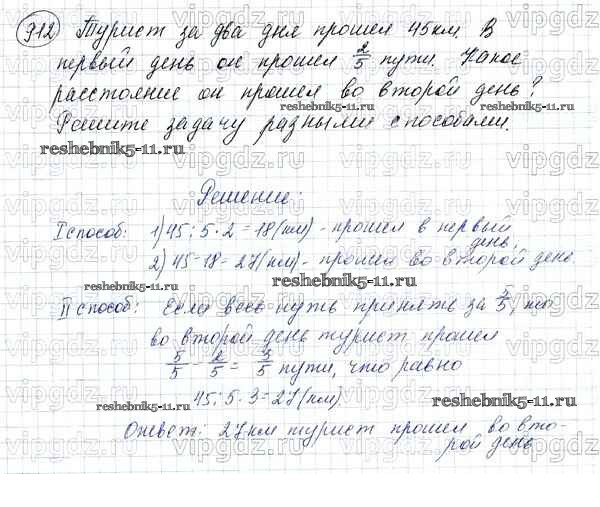 912 Турист за два дня прошел 45км. В
первый день он прошел 2/5 пути. Какое
расстояние он прошел во второй день?
Решите задачу разными способами.
Решение:
I способ: 1) 45:5·2=18(км) - прошел в первый
день,
2) 45-18=27(км) - прошел во второй день.
II способ: Если весь путь принять за 5/5, то
во второй день турист прошел
5/5 - 2/5 = 3/5 пути, что равно
45:5·3=27(км).
Ответ: 27км турист прошел во вто-
рой день
reshebnik5-11.ru
reshebnik5-11.ru
reshebnik5-11.ru
reshebnik5-11.ru
reshebnik5-11.ru
vipgdz.ru